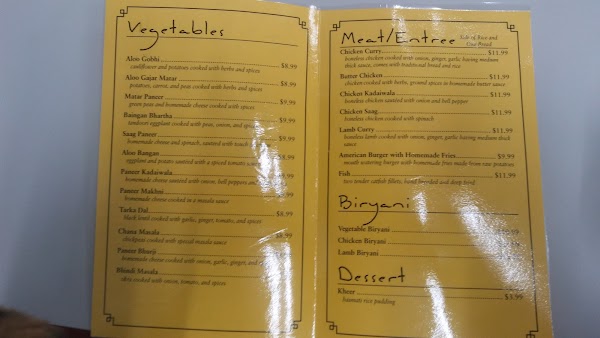 Vegetables
Aloo Gobhi $8.99
cauliflower and potatoes cooked with herbs and spices
Aloo Gajar Matar $8.99
potatoes, carrots, and peas cooked with herbs and spices
Matar Paneer $9.99
green peas and homemade cheese cooked with spices
Baingan Bhartha $9.99
tandoori eggplant cooked with peas, onion, and spices
Saag Paneer $9.99
homemade cheese and spinach, sauteed with
Aloo Bangan
eggplant and potato sauteed with a spiced tomato
Paneer Kadaiwala
homemade cheese sauteed with onion, bell peppers and
Paneer Makhni
homemade cheese cooked in a masala sauce
Tarka Dal $8.99
black lentil cooked with garlic, ginger, tomato, and spices
Chana Masala $8.99
chickpeas cooked with special masala sauce
Paneer Bhurji
homemade cheese cooked with onion, garlic, ginger, and
Bhindi Masala $8.99
okra cooked with onion, tomato, and spices
Meat/Entree Side of Rice and
One Bread
Chicken Curry $11.99
boneless chicken cooked with onion, ginger, garlic, having medium
thick sauce, comes with traditional bread and rice
Butter Chicken $11.99
chicken cooked with herbs, ground spices in homemade butter sauce
Chicken Kadaiwala $11.99
boneless chicken sauteed with onion and bell pepper
Chicken Saag $11.99
boneless chicken cooked with spinach
Lamb Curry $11.99
boneless lamb cooked with onion, ginger, garlic having medium thick
sauce
American Burger with Homemade Fries $9.99
mouth watering burger with homemade fries made from raw potatoes
Fish $11.99
two tender catfish fillets, hand breaded and deep fried
Biryani
Vegetable Biryani
Chicken Biryani
Lamb Biryani
Dessert
Kheer $3.99
basmati rice pudding